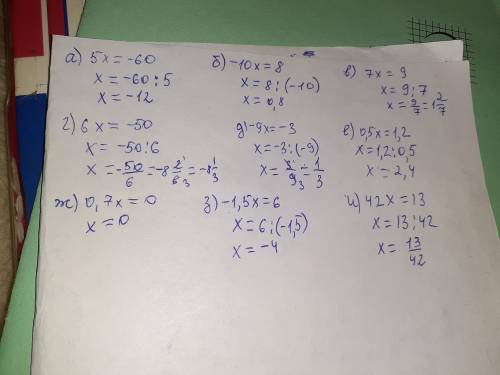 а) 5x = -60
x = -60 : 5
x = -12
б) -10x = 8
x = 8 : (-10)
x = 0,8
в) 7x = 9
x = 9 : 7
x = 9/7 = 1 2/7
г) 6x = -50
x = -50 : 6
x = -50/6 = -8 2/6 = -8 1/3
д) -9x = -3
x = -3 : (-9)
x = 3/9 = 1/3
е) 0,5x = 1,2
x = 1,2 : 0,5
x = 2,4
ж) 0,7x = 0
x = 0
з) -1,5x = 6
x = 6 : (-1,5)
x = -4
и) 42x = 13
x = 13 : 42
x = 13/42